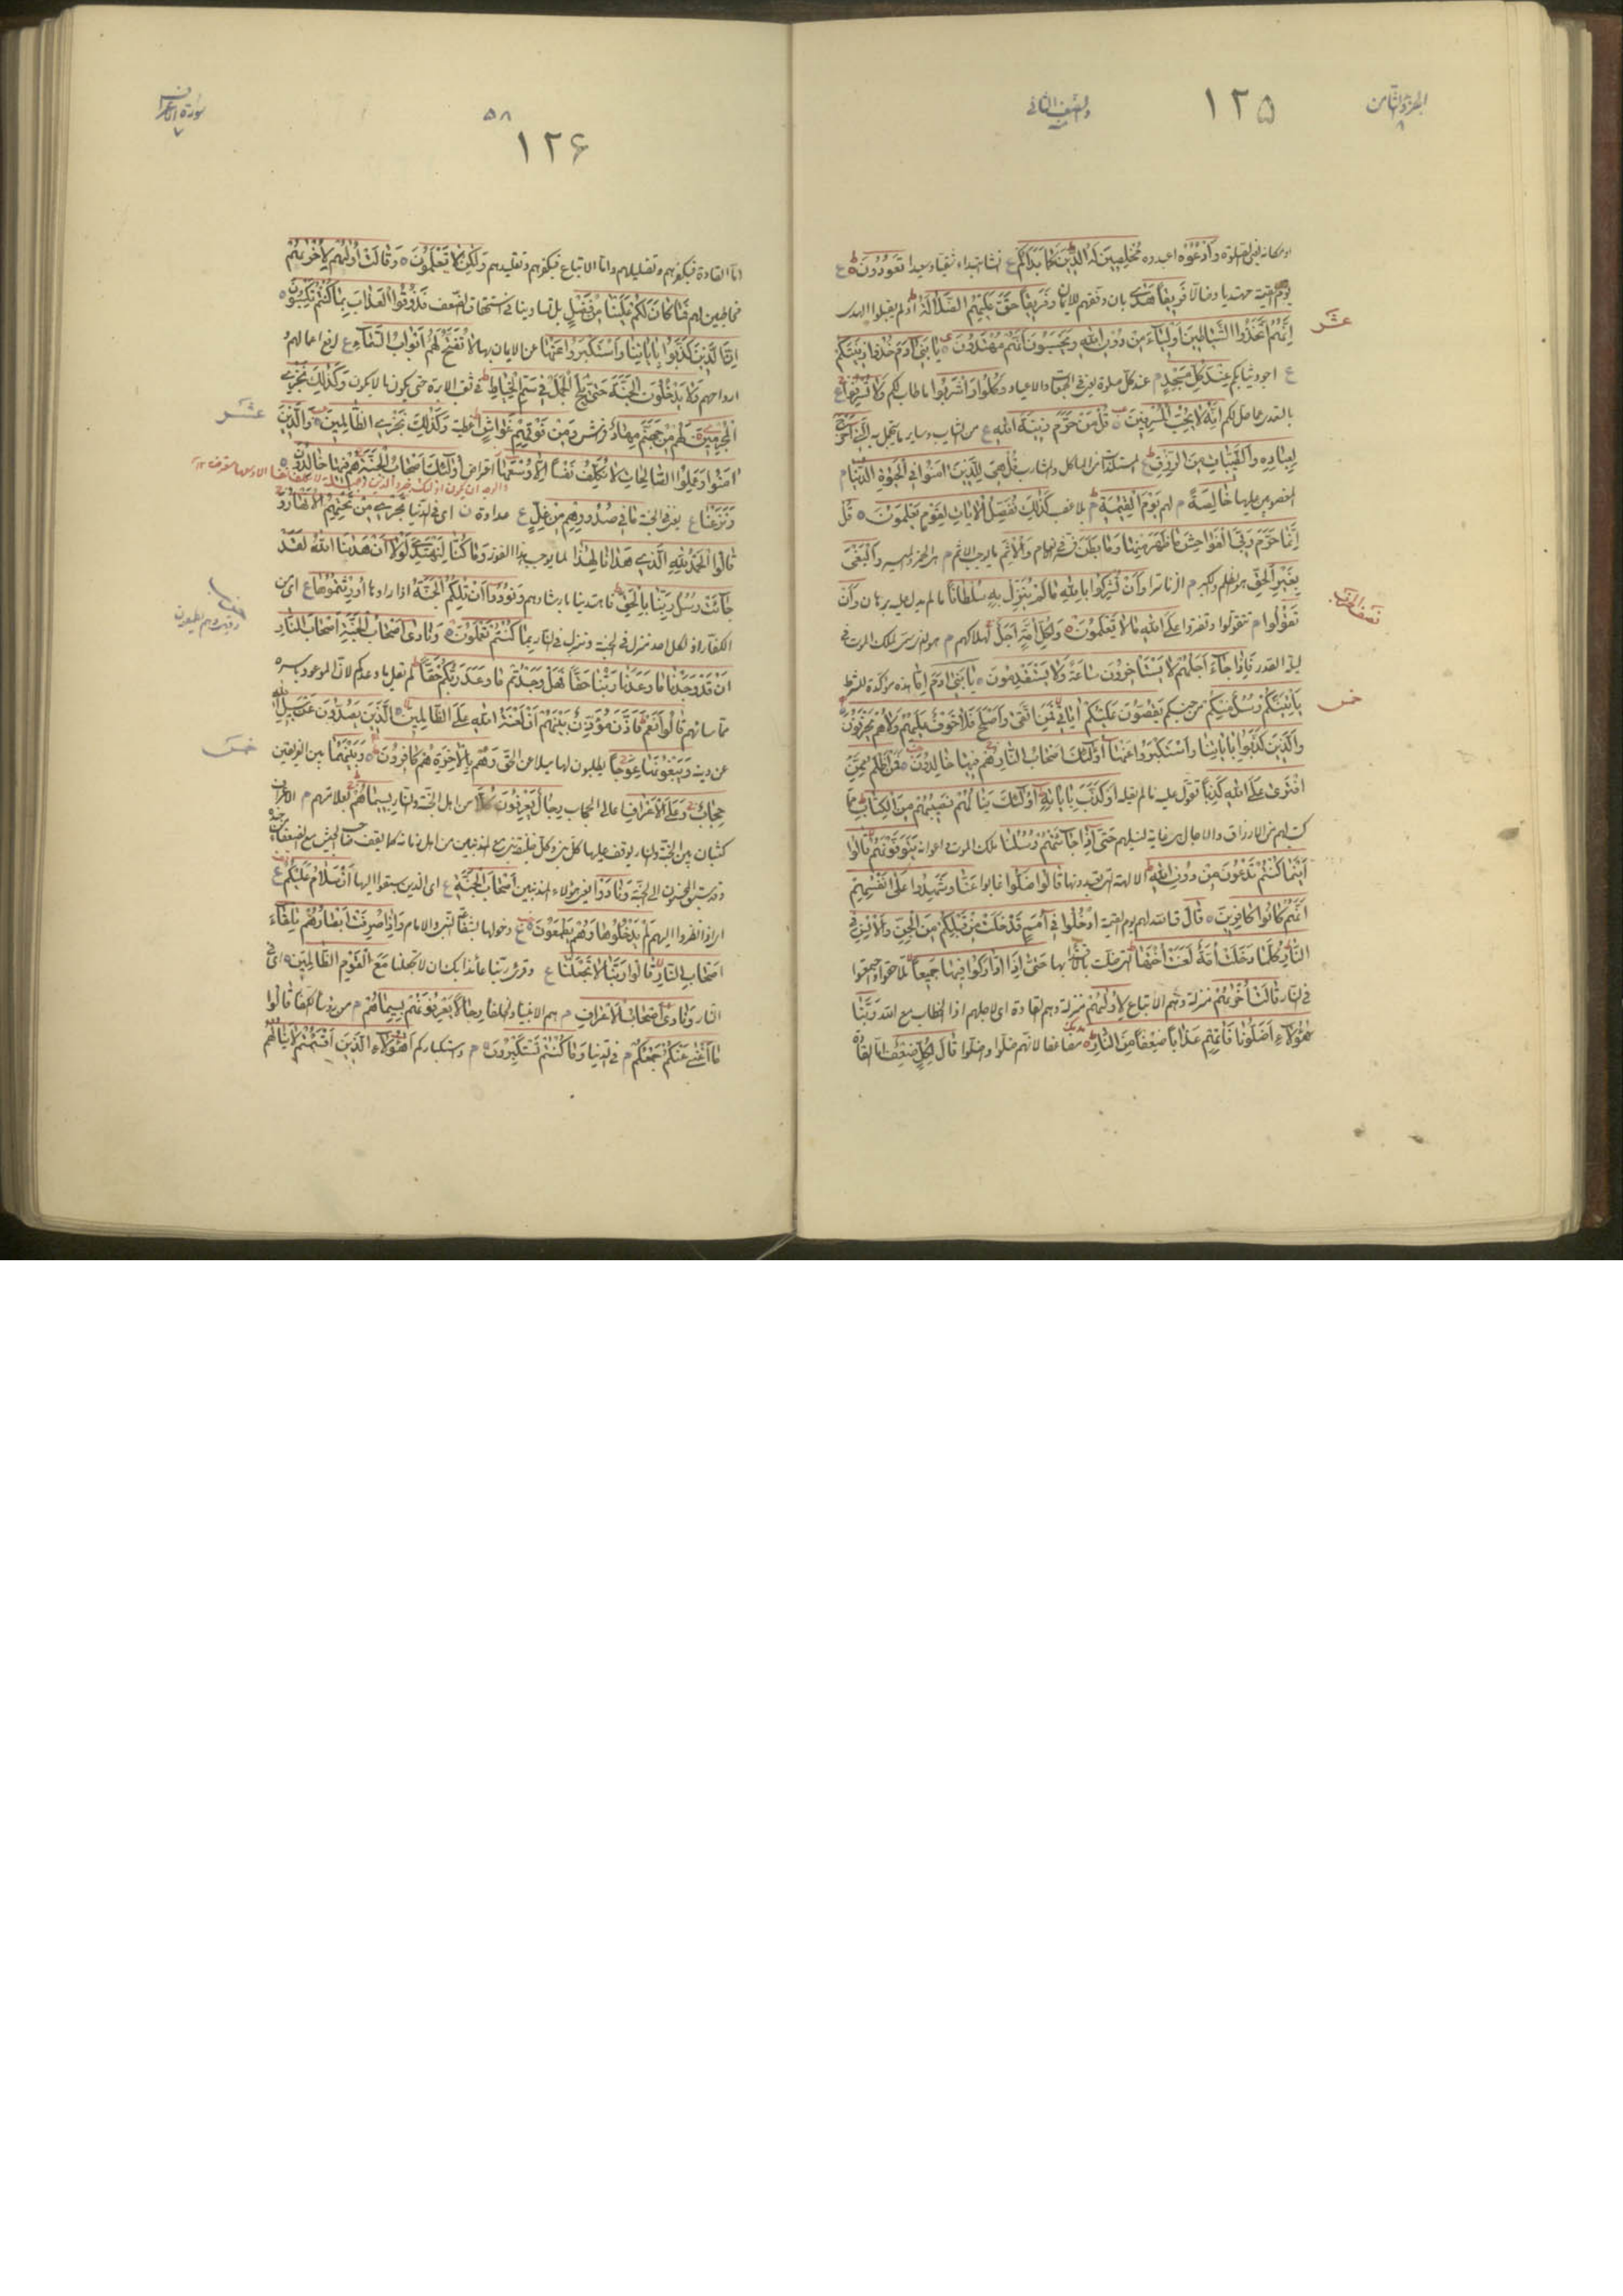 الجزء الثامن
٨
١٢٥
والنصف الثانی
او مکانه فی الصلوة وَادْعُوهُ اعبدوه مُخْلِصِینَ لَهُ الدِّینَ کَمٰا بَدَاَکُمْ انشأ ابتداء شقیا و سعیدا تَعُودُونَ
یوم القیمة مهتدیا و ضالا فَرِیقاً هَدٰی بان وفقهم للایمان وَفَرِیقاً حَقَّ عَلَیْهِمُ الضَّلٰالَةُ اذ لم یقبلوا الهدی
اِنَّهُمُ اتَّخَذُوا الشَّیٰاطِینَ اَوْلِیٰاءَ مِنْ دُونِ اللّٰهِ وَیَحْسَبُونَ اَنَّهُمْ مُهْتَدُونَ یٰا بَنِی اٰدَمَ خُذُوا زِینَتَکُمْ
عشر
اجود ثیابکم عِنْدَ کُلِّ مَسْجِدٍ عند کل صلوة یعنی فی الجمعات والاعیاد وَکُلُوا وَاشْرَبُوا ما طاب لکم وَلٰا تُسْرِفُوا
بالتعدی عما حل لکم اِنَّهُ لٰا یُحِبُّ الْمُسْرِفِینَ قُلْ مَنْ حَرَّمَ زِینَةَ اللّٰهِ من الثیاب وسایر ما یتجمل به الَّتِی اَخْرَجَ
لِعِبٰادِهِ وَالطَّیِّبٰاتِ مِنَ الرِّزْقِ المستلذات من المآکل والمشارب قُلْ هِیَ لِلَّذِینَ اٰمَنُوا فِی الْحَیٰوةِ الدُّنْیٰا
المغصوبین علیها خٰالِصَةً لهم یَوْمَ الْقِیٰمَةِ بلا غصب کَذٰلِکَ نُفَصِّلُ الْاٰیٰاتِ لِقَوْمٍ یَعْلَمُونَ قُلْ
اِنَّمٰا حَرَّمَ رَبِّیَ الْفَوٰاحِشَ مٰا ظَهَرَ مِنْهٰا وَمٰا بَطَنَ وَالْاِثْمَ ما یوجب الاثم هی الخمر والمیسر وَالْبَغْیَ
بِغَیْرِ الْحَقِّ هو الظلم والکبر او الزنا سرا وَاَنْ تُشْرِکُوا بِاللّٰهِ مٰا لَمْ یُنَزِّلْ بِهِ سُلْطٰاناً ما لم یدل علیه برهان وَاَنْ
نصف الحزب
تَقُولُوا تتقولوا وتفتروا عَلَی اللّٰهِ مٰا لٰا تَعْلَمُونَ وَلِکُلِّ اُمَّةٍ اَجَلٌ لهلاکهم هو الذی یسمی لملک الموت فی
لیلة القدر فَاِذٰا جٰاءَ اَجَلُهُمْ لٰا یَسْتَأْخِرُونَ سٰاعَةً وَلٰا یَسْتَقْدِمُونَ یٰا بَنِی اٰدَمَ اِمّٰا هذه مؤکدة للشرط
خمس
یَأْتِیَنَّکُمْ رُسُلٌ مِنْکُمْ من جنسکم یَقُصُّونَ عَلَیْکُمْ اٰیٰاتِی فَمَنِ اتَّقٰی وَاَصْلَحَ فَلٰا خَوْفٌ عَلَیْهِمْ وَلٰا هُمْ یَحْزَنُونَ
وَالَّذِینَ کَذَّبُوا بِاٰیٰاتِنٰا وَاسْتَکْبَرُوا عَنْهٰا اُولٰئِکَ اَصْحٰابُ النّٰارِ هُمْ فِیهٰا خٰالِدُونَ فَمَنْ اَظْلَمُ مِمَّنِ
افْتَرٰی عَلَی اللّٰهِ کَذِباً تقول علیه ما لم یقله اَوْ کَذَّبَ بِاٰیٰاتِهِ اُولٰئِکَ یَنٰالُهُمْ نَصِیبُهُمْ مِنَ الْکِتٰابِ مما
کتب لهم من الارزاق والاجال حَتّٰی اِذٰا جٰاءَتْهُمْ رُسُلُنٰا ملک الموت واعوانه یَتَوَفَّوْنَهُمْ قٰالُوا
اَیْنَمٰا کُنْتُمْ تَدْعُونَ مِنْ دُونِ اللّٰهِ الالهة التی تعبدونها قٰالُوا ضَلُّوا غابوا عَنّٰا وَشَهِدُوا عَلٰی اَنْفُسِهِمْ
اَنَّهُمْ کٰانُوا کٰافِرِینَ قٰالَ قال الله لهم یوم القیمة ادْخُلُوا فِی اُمَمٍ قَدْ خَلَتْ مِنْ قَبْلِکُمْ مِنَ الْجِنِّ وَالْاِنْسِ فِی
النّٰارِ کُلَّمٰا دَخَلَتْ اُمَّةٌ لَعَنَتْ اُخْتَهٰا التی ضلت بالاقتداء بها حَتّٰی اِذَا ادّٰارَکُوا فِیهٰا جَمِیعاً تلاحقوا واجتمعوا
فی النار قٰالَتْ اُخْرٰیهُمْ منزلة وهم الاتباع لِاُولٰیهُمْ منزلة وهم القادة ای لاجلهم اذ الخطاب مع الله رَبَّنٰا
هٰؤُلٰاءِ اَضَلُّونٰا فَاٰتِهِمْ عَذٰاباً ضِعْفاً مِنَ النّٰارِ مضاعفا لانهم ضلوا واضلوا قٰالَ لِکُلٍّ ضِعْفٌ اما القادة
سورة الاعراف
٧
٥٨
١٢۶
اما القادة فبکفرهم وتضلیلهم واما الاتباع فبکفرهم وتقلیدهم وَلٰکِنْ لٰا تَعْلَمُونَ وَقٰالَتْ اُولٰیهُمْ لِاُخْرٰیهُمْ
مخاطبین لهم فَمٰا کٰانَ لَکُمْ عَلَیْنٰا مِنْ فَضْلٍ بل تساوینا فی استحقاق الضعف فَذُوقُوا الْعَذٰابَ بِمٰا کُنْتُمْ تَکْسِبُونَ
اِنَّ الَّذِینَ کَذَّبُوا بِاٰیٰاتِنٰا وَاسْتَکْبَرُوا عَنْهٰا عن الایمان بها لٰا تُفَتَّحُ لَهُمْ اَبْوٰابُ السَّمٰاءِ لرفع اعمالهم و
ارواحهم وَلٰا یَدْخُلُونَ الْجَنَّةَ حَتّٰی یَلِجَ الْجَمَلُ فِی سَمِّ الْخِیٰاطِ فی ثقب الابرة حتی یکون ما لا یکون وَکَذٰلِکَ نَجْزِی
عشر
الْمُجْرِمِینَ لَهُمْ مِنْ جَهَنَّمَ مِهٰادٌ فرش وَمِنْ فَوْقِهِمْ غَوٰاشٍ اغطیة وَکَذٰلِکَ نَجْزِی الظّٰالِمِینَ وَالَّذِینَ
اٰمَنُوا وَعَمِلُوا الصّٰالِحٰاتِ لٰا نُکَلِّفُ نَفْساً اِلّٰا وُسْعَهٰا اعتراض اُولٰئِکَ اَصْحٰابُ الْجَنَّةِ هُمْ فِیهٰا خٰالِدُونَ
وَنَزَعْنٰا یعنی فی الجنة مٰا فِی صُدُورِهِمْ مِنْ غِلٍّ عداوة ای فی الدنیا تَجْرِی مِنْ تَحْتِهِمُ الْاَنْهٰارُ وَ
قٰالُوا الْحَمْدُ لِلّٰهِ الَّذِی هَدٰانٰا لِهٰذٰا لما یوجب هذا الفوز وَمٰا کُنّٰا لِنَهْتَدِیَ لَوْلٰا اَنْ هَدٰانَا اللّٰهُ لَقَدْ
جٰاءَتْ رُسُلُ رَبِّنٰا بِالْحَقِّ فاهتدینا بارشادهم وَنُودُوا اَنْ تِلْکُمُ الْجَنَّةُ اذا راوها اُورِثْتُمُوهٰا ای من
الکفار اذ لکل احد منزل فی الجنة ومنزل فی النار بِمٰا کُنْتُمْ تَعْمَلُونَ وَنٰادٰی اَصْحٰابُ الْجَنَّةِ اَصْحٰابَ النّٰارِ
اَنْ قَدْ وَجَدْنٰا مٰا وَعَدَنٰا رَبُّنٰا حَقّاً فَهَلْ وَجَدْتُمْ مٰا وَعَدَ رَبُّکُمْ حَقّاً لم یقل ما وعدکم لان الموعود باسره
مما ساءهم قٰالُوا نَعَمْ فَاَذَّنَ مُؤَذِّنٌ بَیْنَهُمْ اَنْ لَعْنَةُ اللّٰهِ عَلَی الظّٰالِمِینَ الَّذِینَ یَصُدُّونَ عَنْ سَبِیلِ اللّٰهِ
خمس
عن دینه وَیَبْغُونَهٰا عِوَجاً یطلبون لها میلا عن الحق وَهُمْ بِالْاٰخِرَةِ هُمْ کٰافِرُونَ وَبَیْنَهُمٰا بین الفریقین
حِجٰابٌ وَعَلَی الْاَعْرٰافِ اعالی الحجاب رِجٰالٌ یَعْرِفُونَ کُلّاً من اهل الجنة والنار بِسِیمٰاهُمْ بعلامتهم الاعراف
کثبان بین الجنة والنار یوقف علیها کل نبی وکل خلیفة نبی مع المذنبین من اهل زمانه کما یقف صاحب الجیش مع الضعفاء
وقد سبق المحسنون الی الجنة وَنٰادَوْا یعنی هؤلاء المذنبین اَصْحٰابَ الْجَنَّةِ ای الذین سبقوا الیها اَنْ سَلٰامٌ عَلَیْکُمْ
اذا نظروا الیهم لَمْ یَدْخُلُوهٰا وَهُمْ یَطْمَعُونَ دخولها بشفاعة النبی والامام وَاِذٰا صُرِفَتْ اَبْصٰارُهُمْ تِلْقٰاءَ
اَصْحٰابِ النّٰارِ قٰالُوا رَبَّنٰا لٰا تَجْعَلْنٰا وقرئ ربنا عائذا بک ان لا تجعلنا مَعَ الْقَوْمِ الظّٰالِمِینَ ای فی
النار وَنٰادٰی اَصْحٰابُ الْاَعْرٰافِ هم الانبیاء والخلفاء رِجٰالاً یَعْرِفُونَهُمْ بِسِیمٰاهُمْ من رؤساء الکفار قٰالُوا
مٰا اَغْنٰی عَنْکُمْ جَمْعُکُمْ فی الدنیا وَمٰا کُنْتُمْ تَسْتَکْبِرُونَ واستکبارکم اَهٰؤُلٰاءِ الَّذِینَ اَقْسَمْتُمْ لٰا یَنٰالُهُمُ